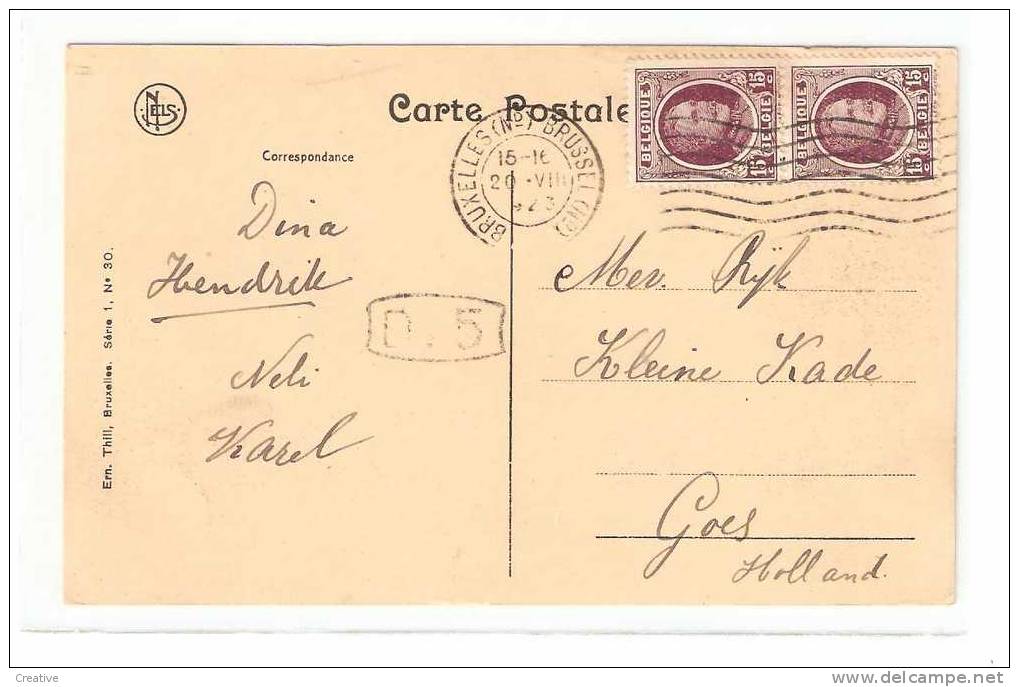 NELS
Carte Postale
Correspondance
BRUXELLES (Nd) BRUSSEL (Nd)
15-16
20 VIII
BELGIQUE 15 c BELGIË 15 c
BELGIQUE 15 c BELGIË 15 c
Dina
Hendrik
Neli
Karel
D. 5
Mev. Ryk
Kleine Kade
Goes
Holland.
Ern. Thill, Bruxelles. Série 1, No 30.
Creative
www.delcampe.net